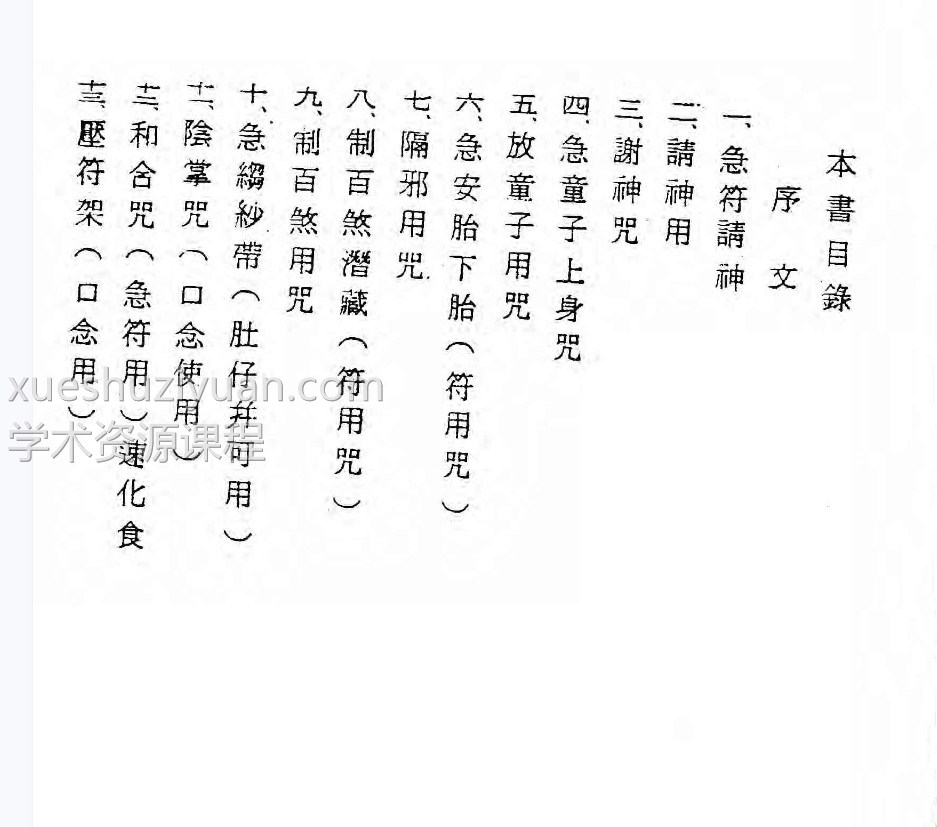 本書目錄
序文
一、急符請神
二、請神用
三、謝神咒
四、急童子上身咒
五、放童子用咒
六、急安胎下胎（符用咒）
七、隔邪用咒
八、制百煞潛藏（符用咒）
九、制百煞用咒
十、急縐紗帶（肚仔幷可用）
十一、陰掌咒（口念使用）
十二、和合咒（急符用）速化食
十三、壓符架（口念用）
xueshuziyuan.com
学术资源课程